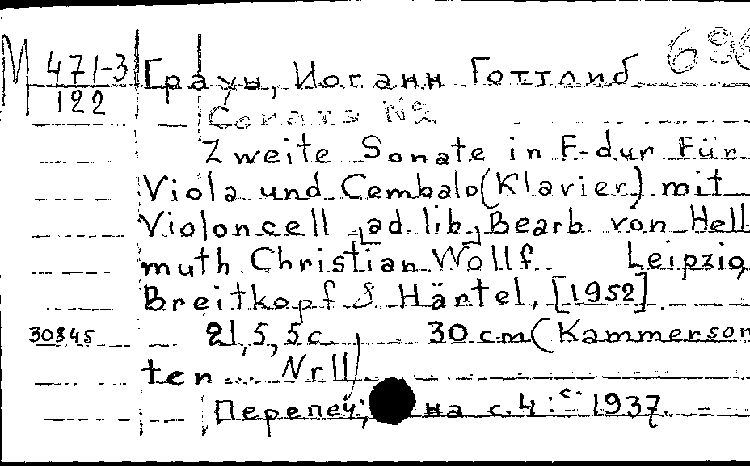 М 471-3 Граун, Иоганн Готтлиб 696
122
Соната №2
Zweite Sonate in F-dur Für
Viola und Cembalo (Klavier) mit
Violoncell [ad. lib.] Bearb. von Hell
muth Christian Wolff Leipzig,
Breitkopf & Härtel, [1952]
30845 21, 5, 5 с. 30 cm (Kammerson
ten... Nr 11)
Перепеч; на с. 4: с. 1937.